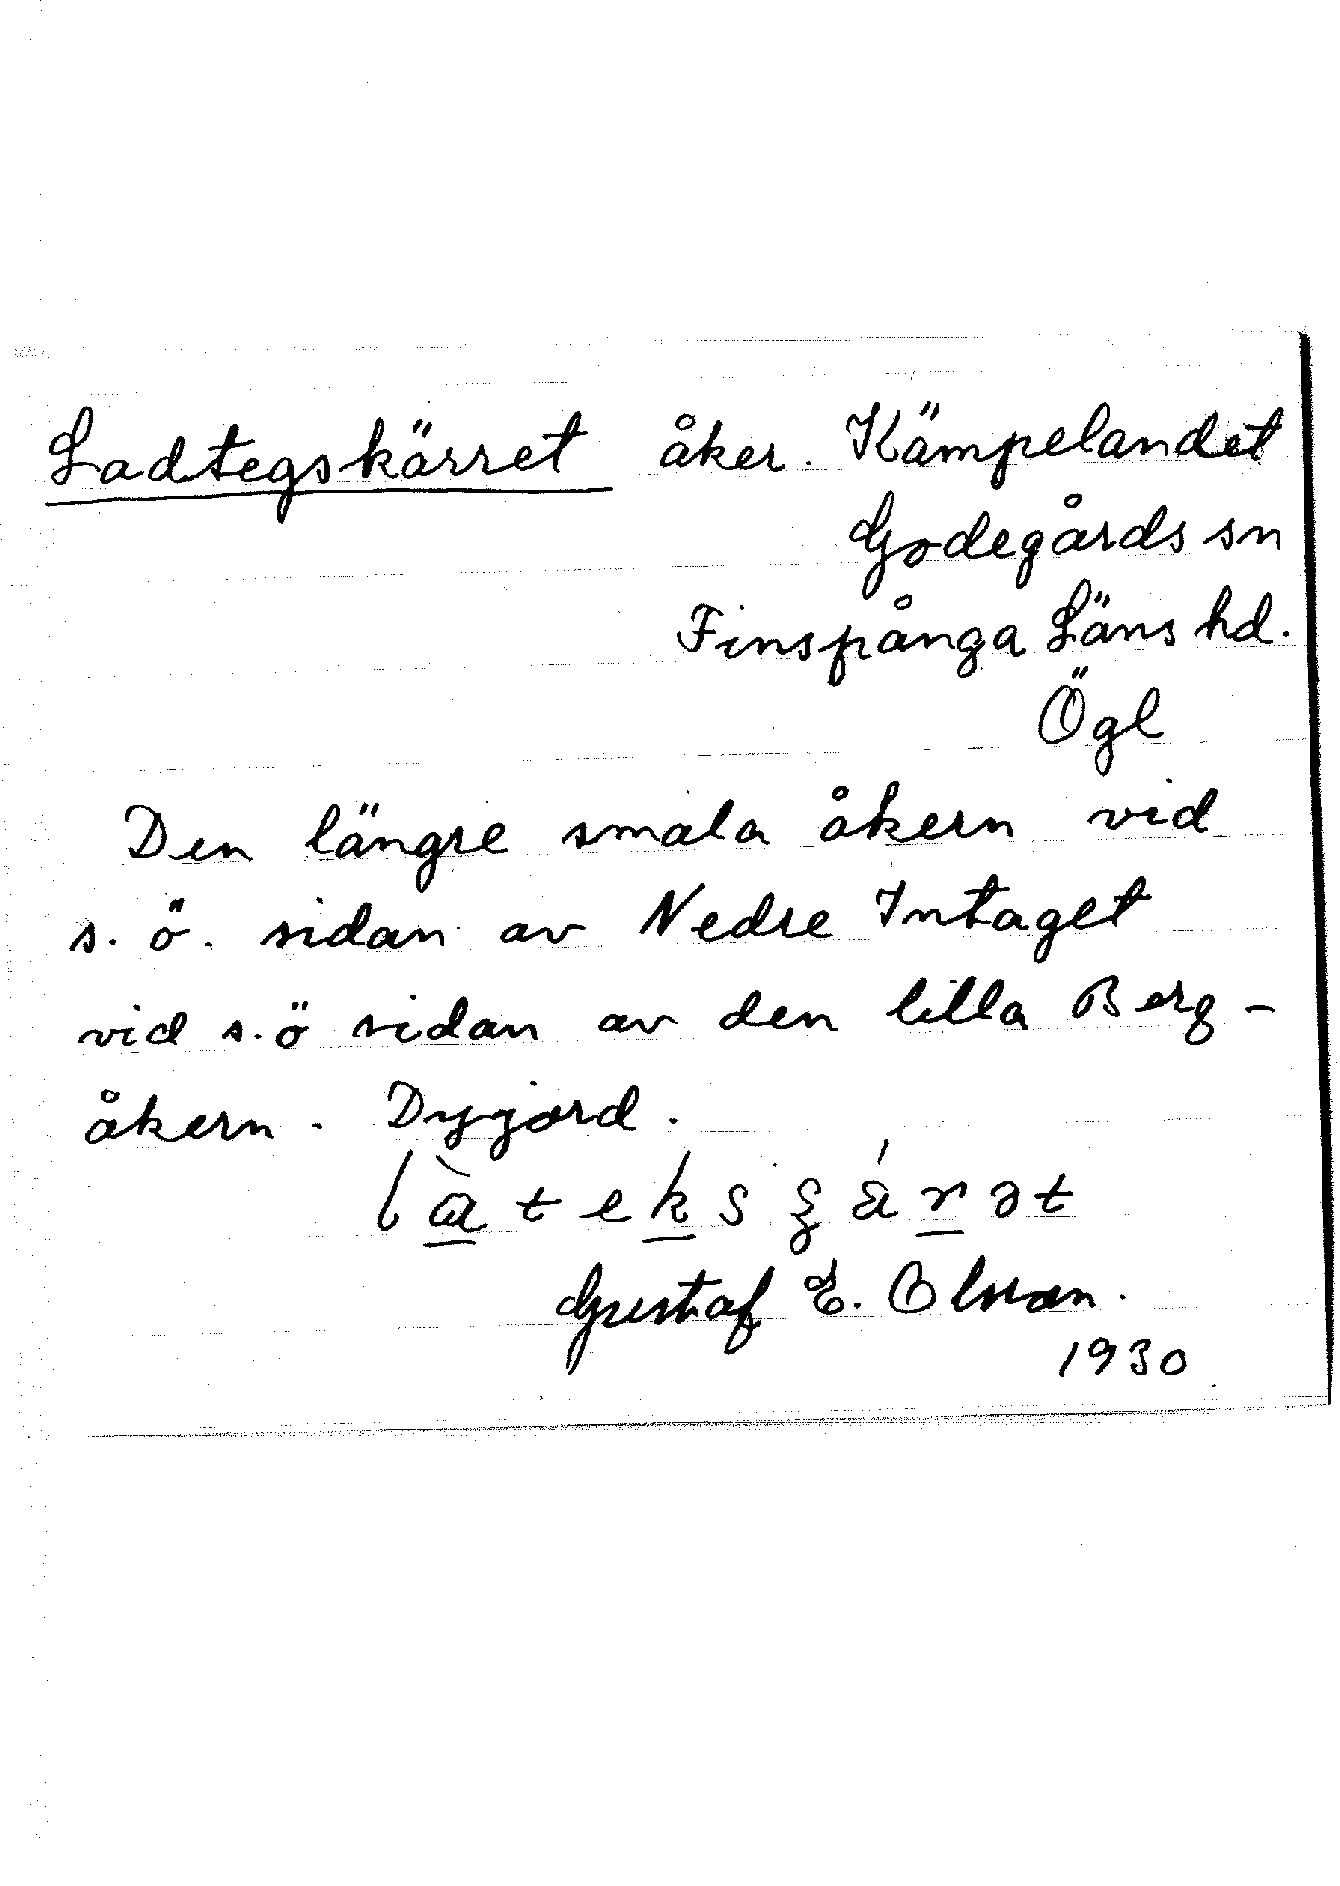 Ladtegskärret åker. Kämpelandet
Godegårds sn
Finspånga Läns hd.
Ögl
Den längre smala åkern vid
s. ö. sidan av Nedre Intaget
vid s.ö sidan av den lilla Berg-
åkern. Dyjord.
Gustaf E. Olsson.
1930